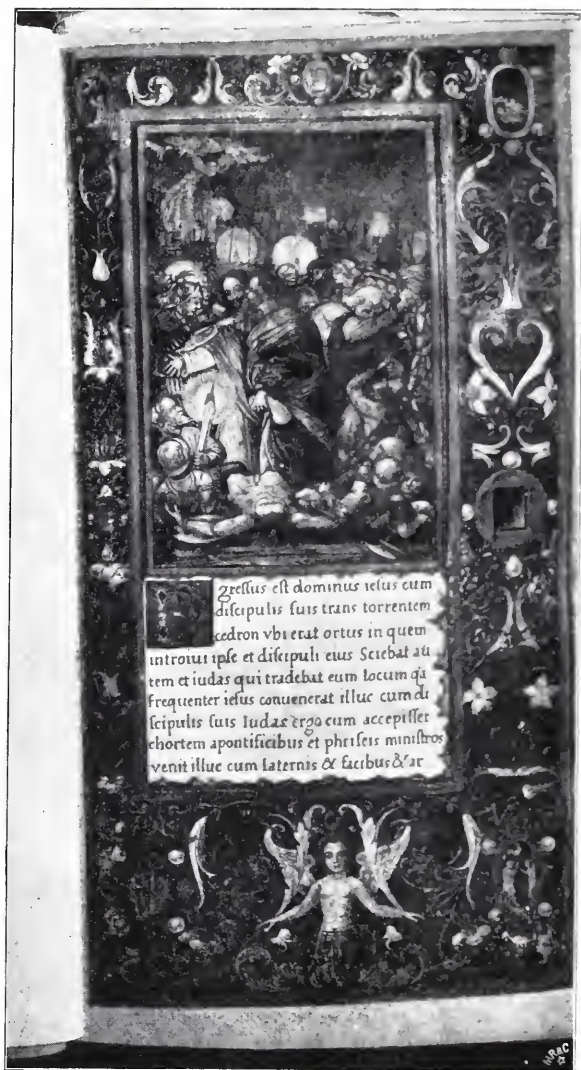 gressus est dominus iesus cum
discipulis suis trans torrentem
cedron vbi erat ortus in quem
introiuit ipse et discipuli eius Sciebat au
tem et iudas qui tradebat eum locum qa
frequenter iesus conuenerat illuc cum di
scipulis suis Iudas ergo cum accepisset
chortem apontificibus et phriseis ministros
venit illuc cum laternis & facibus & ar
MR&C